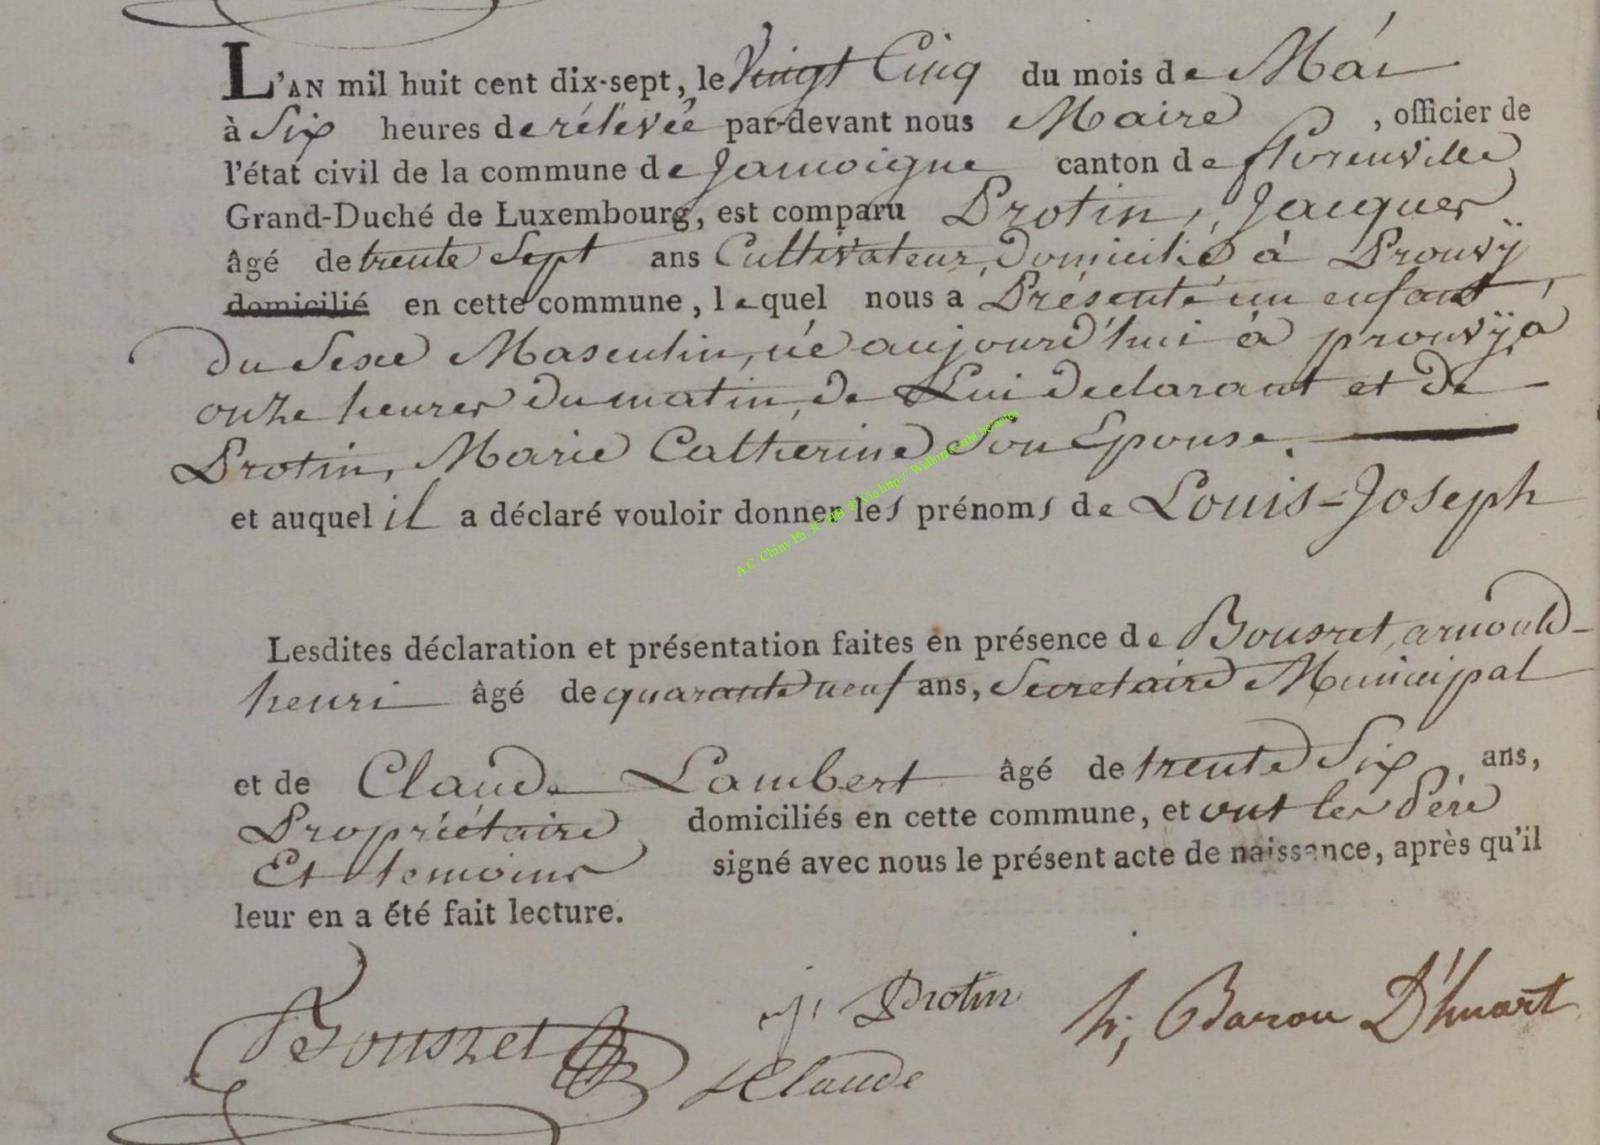 L'AN mil huit cent dix-sept, le Vingt Cinq du mois de Mai
à Six heures de rélevée par-devant nous Maire, officier de
l'état civil de la commune de Jamoigne canton de florenville
Grand-Duché de Luxembourg, est comparu Protin, Jacques
âgé de trente Sept ans Cultivateur, domicilié à Prouvÿ
domicilié en cette commune, lequel nous a Présenté un enfant
du Sexe Masculin, né aujourd'hui à prouvÿ, à
onze heures du matin, de Lui declarant et de
Protin, Marie Catherine Son Epouse.
et auquel il a déclaré vouloir donner les prénoms de Louis-Joseph
Lesdites déclaration et présentation faites en présence de Bousret, arnould-
henri âgé de quarante neuf ans, Secretaire Municipal
et de Claude Lambert âgé de trente Six ans,
Propriétaire domiciliés en cette commune, et ont les Pére
Et temoins signé avec nous le présent acte de naissance, après qu'il
leur en a été fait lecture.
j. Protin
h, Baron D'huart
Bousret
LClaude